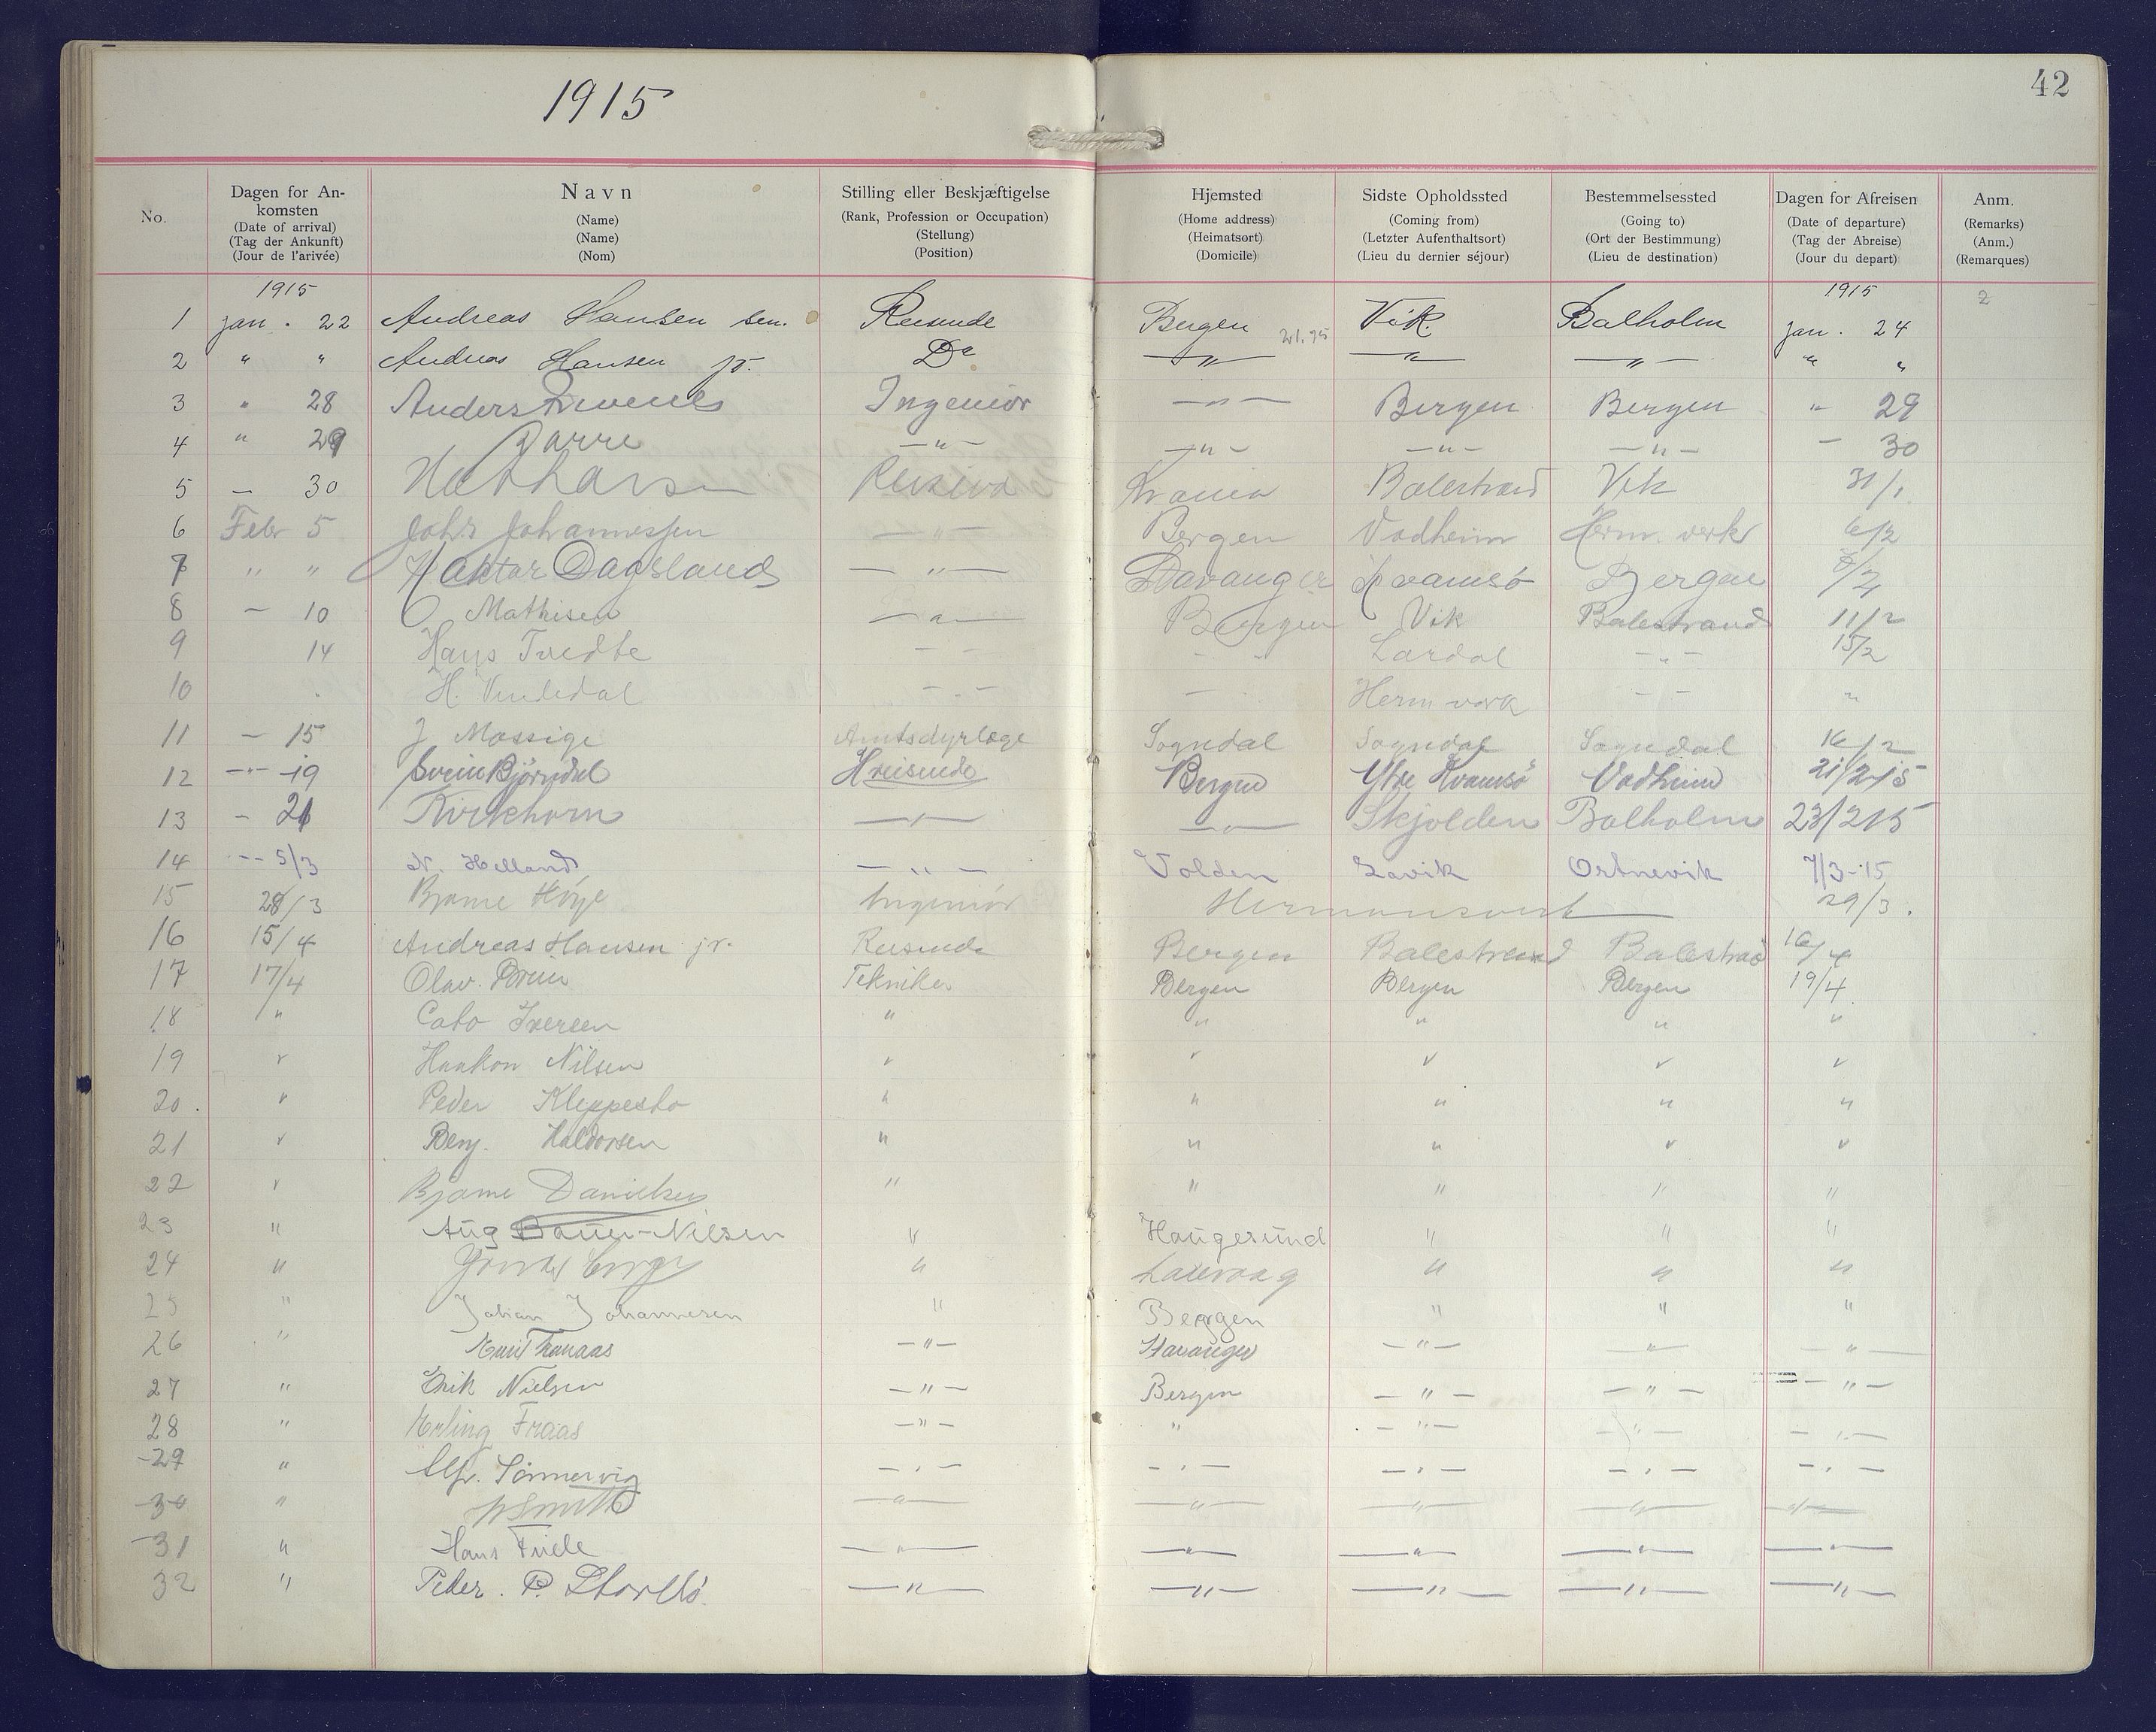 1915
42
No.
Dagen for An-
komsten
(Date of arrival)
(Tag der Ankunft)
(Jour de l'arivée)
Navn
(Name)
(Name)
(Nom)
Stilling eller Beskjæftigelse
(Rank, Profession or Occupation)
(Stellung)
(Position)
Hjemsted
(Home address)
(Heimatsort)
(Domicile)
Sidste Opholdssted
(Coming from)
(Letzter Aufenthaltsort)
(Lieu du dernier séjour)
Bestemmelsessted
(Going to)
(Ort der Bestimmung)
(Lieu de destination)
Dagen for Afreisen
(Date of departure)
(Tag der Abreise)
(Jour du depart)
Anm.
(Remarks)
(Anm.)
(Remarques)
1915 1915 2
1 jan. 22 Andreas Hansen sen. Reisende Bergen Vik. Balholm jan. 24
2 " " Andreas Hansen jr. Do — " — — " — — " — " "
3 " 28 Anders Ingeniör — " — Bergen Bergen " 29
4 " 29 — " — — " — — " — — " — — 30
5 — 30 Balestrand Vik 31/1
6 Febr 5 Johs Johannessen — " — Bergen Vadheim Herm. verk 6/2
7 " " Dagsland — " — Stavanger Kvamsö Bergen 8/2
8 — 10 O Mathisen — " — Bergen Vik Balestrand 11/2
9 14 Hans Tvedte — — — — Lærdal — " — 15/2
10 H. — " — — Herm verk — — "
11 — 15 J Massige Amtsdyrlæge Sogndal Sogndal Sogndal 16/2
12 — " — 19 Svein Björndal Hreisende Bergen Ytre Kvamsö Vadheim 21/2 15
13 — 21 Kirkhorn — " — — " — Skjolden Balholm 23/2 15
14 - - 5/3 N. Helland — " — Volden Lavik Ortnevik 7/3-15
15 28/3 Bjarne Höye Ingeniör Hermansverk 29/3.
16 15/4 Andreas Hansen jr. Reisende Bergen Balestrand Balestrand 16/4
17 17/4 Olav. Tekniker Bergen Bergen Bergen 19/4
18 " Cato Iversen " " " " "
19 " Haakon Nilsen " " " " "
20. " Peder Kleppestø " " " " "
21 " Benj. Haldorsen " " " " "
22 " Bjarne Danielsen " " " " "
23 " Aug Bauer-Nilsen " Haugesund " " "
24 " " " " "
25 " Johan Johannesen " Bergen " " "
26 " — " — Stavanger — " — " — " —
27 " Erik Nielsen — " — Bergen — " — — " — — " —
28 " Erling Fraas — " — " — " — — " — — " —
29 " Alfr. Sönnervig — " — — " — — " — — " — — " —
30 " — " — — " — — " — — " — — " —
31 " Hans Friele — " — — " — — " — — " — — " —
32 " Peder. P. — " — — " — — " — — " — — " —